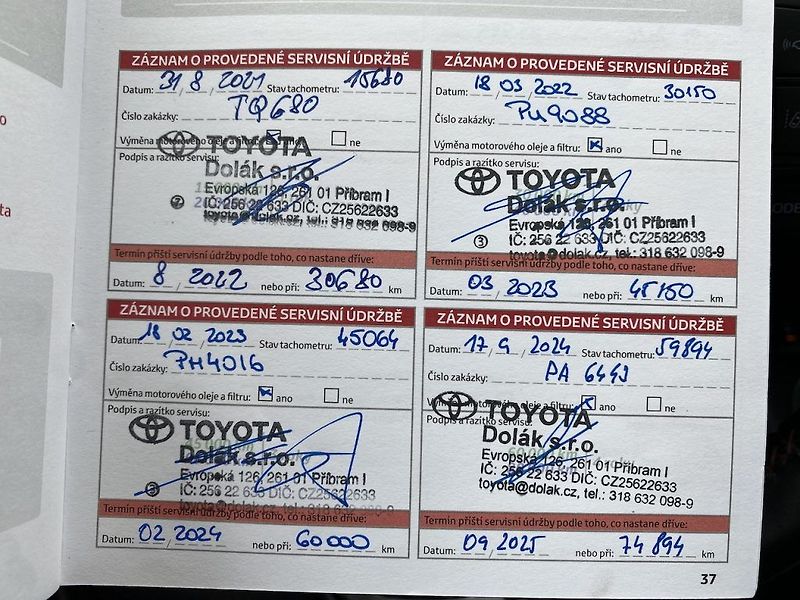 ZÁZNAM O PROVEDENÉ SERVISNÍ ÚDRŽBĚ
Datum: 31 / 8 / 2021 Stav tachometru: 15680
Číslo zakázky: TQ680
Výměna motorového oleje a filtru: ano ne
Podpis a razítko servisu:
TOYOTA
Dolák s.r.o.
Evropská 126, 261 01 Příbram I
IČ: 256 22 633 DIČ: CZ25622633
toyota@dolak.cz, tel.: 318 632 098-9
Termín příští servisní údržby podle toho, co nastane dříve:
Datum: 8 / 2022 nebo při: 30680 km
ZÁZNAM O PROVEDENÉ SERVISNÍ ÚDRŽBĚ
Datum: 18 / 03 / 2022 Stav tachometru: 30150
Číslo zakázky: PU9088
Výměna motorového oleje a filtru: ano ne
Podpis a razítko servisu:
TOYOTA
Dolák s.r.o.
Evropská 126, 261 01 Příbram I
3 IČ: 256 22 633 DIČ: CZ25622633
toyota@dolak.cz, tel.: 318 632 098-9
Termín příští servisní údržby podle toho, co nastane dříve:
Datum: 03 / 2023 nebo při: 45150 km
ZÁZNAM O PROVEDENÉ SERVISNÍ ÚDRŽBĚ
Datum: 18 / 02 / 2023 Stav tachometru: 45064
Číslo zakázky: PH4016
Výměna motorového oleje a filtru: ano ne
Podpis a razítko servisu:
TOYOTA
Dolák s.r.o.
Evropská 126, 261 01 Příbram I
3 IČ: 256 22 633 DIČ: CZ25622633
toyota@dolak.cz, tel.: 318 632 098-9
Termín příští servisní údržby podle toho, co nastane dříve:
Datum: 02 / 2024 nebo při: 60000 km
ZÁZNAM O PROVEDENÉ SERVISNÍ ÚDRŽBĚ
Datum: 17 / 9 / 2024 Stav tachometru: 59894
Číslo zakázky: PA 6443
Výměna motorového oleje a filtru: ano ne
Podpis a razítko servisu:
TOYOTA
Dolák s.r.o.
Evropská 126, 261 01 Příbram I
IČ: 256 22 633 DIČ: CZ25622633
toyota@dolak.cz, tel.: 318 632 098-9
Termín příští servisní údržby podle toho, co nastane dříve:
Datum: 09 / 2025 nebo při: 74894 km
37